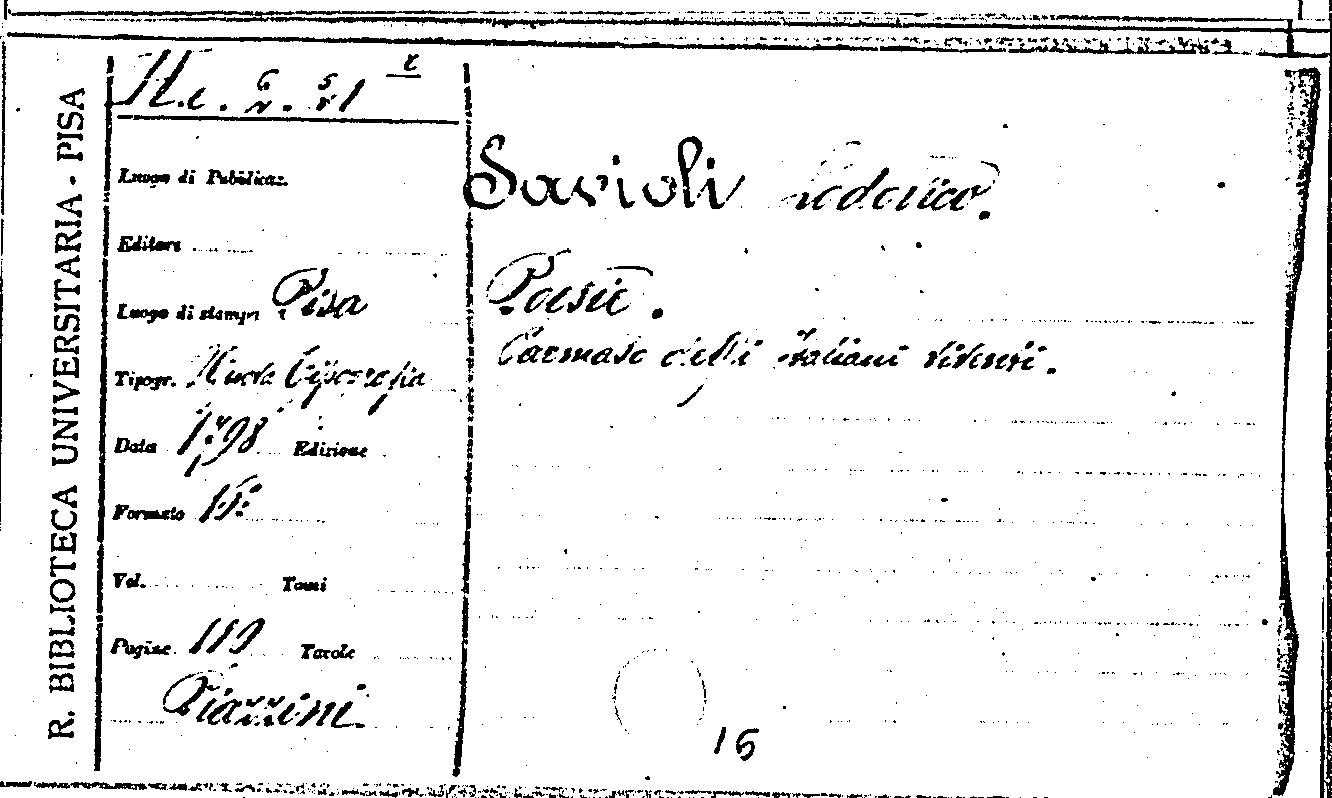 R. BIBLIOTECA UNIVERSITARIA - PISA
H.c. 6. 5. 21
Luogo di Pubblicaz.
Editore
Luogo di stampa Pisa
Tipogr. Nuova Tipografia
Data 1798 Edizione
Formato 15:
Vol. Tomi
Pagine 119 Tavole
Piazzini
Savioli Lodovico.
Poesie.
Parnaso degli Italiani viventi.
16